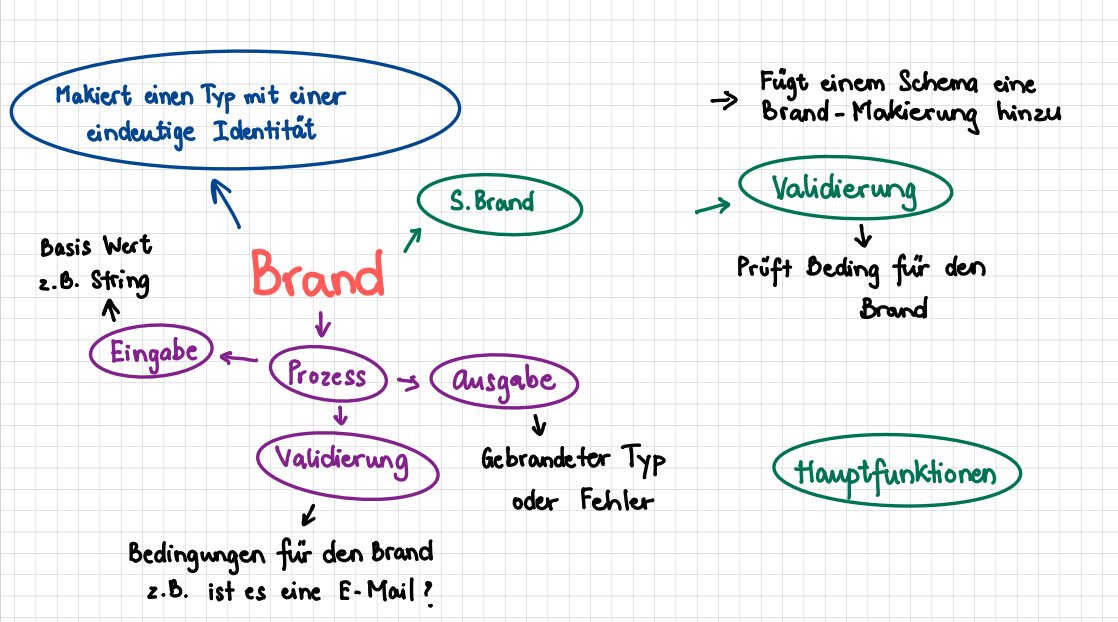 Makiert einen Typ mit einer
eindeutige Identität
Fügt einem Schema eine
Brand-Makierung hinzu
S.Brand
Validierung
Prüft Beding für den
Brand
Brand
Basis Wert
z.B. String
Eingabe
Prozess
Ausgabe
Validierung
Gebrandeter Typ
oder Fehler
Hauptfunktionen
Bedingungen für den Brand
z.B. ist es eine E-Mail?